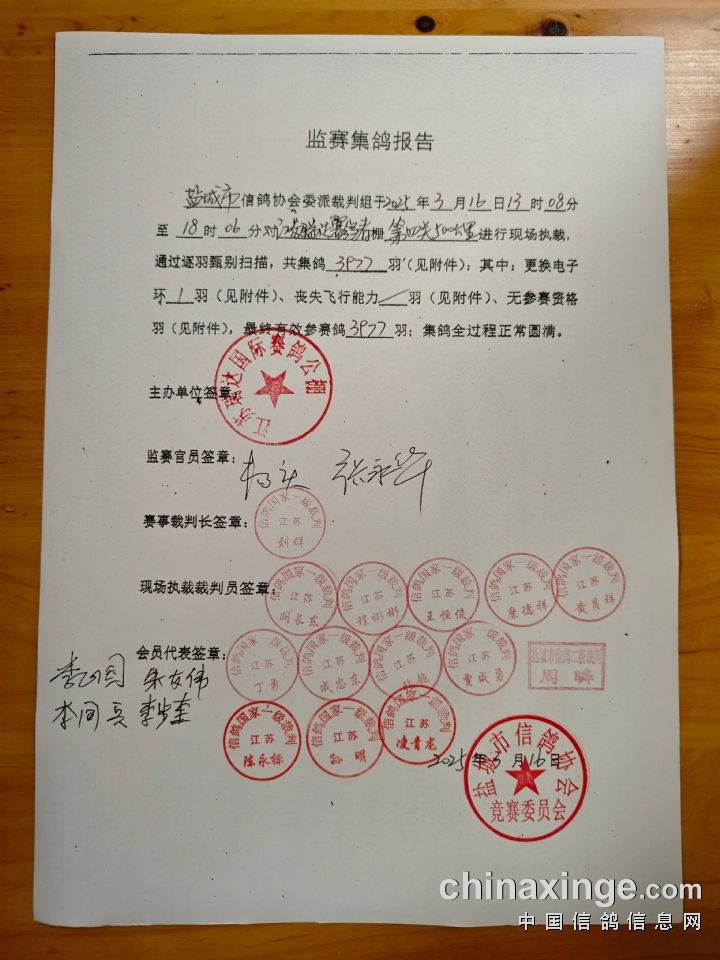 监赛集鸽报告
盐城市信鸽协会委派裁判组于2025年3月16日13时08分
至18时06分对江苏瑞达赛鸽棚第四关500公里进行现场执裁,
通过逐羽甄别扫描,共集鸽3977羽(见附件):其中:更换电子
环1羽(见附件)、丧失飞行能力/羽(见附件)、无参赛资格
羽(见附件),最终有效参赛鸽3977羽;集鸽全过程正常圆满。
主办单位签章:
江苏瑞达国际赛鸽公棚
监赛官员签章:
张永华
赛事裁判长签章:
信鸽国家一级裁判
江苏
刘群
现场执裁裁判员签章:
信鸽国家一级裁判
江苏
长东
信鸽国家一级裁判
江苏
程彬彬
信鸽国家一级裁判
江苏
王恒俊
信鸽国家一级裁判
江苏
德祥
信鸽国家一级裁判
江苏
黄月祥
会员代表签章:
信鸽国家二级裁判
江苏
丁勇
信鸽国家二级裁判
江苏
成忠东
信鸽国家二级裁判
江苏
信鸽国家二级裁判
江苏
贾成勇
盐城市信鸽二级裁判
周
朱友伟
信鸽国家二级裁判
江苏
陈永标
信鸽国家二级裁判
江苏
明
信鸽国家二级裁判
江苏
凌青龙
2025年3月16日
盐城市信鸽协会
竞赛委员会
chinaxinge.com
中国信鸽信息网